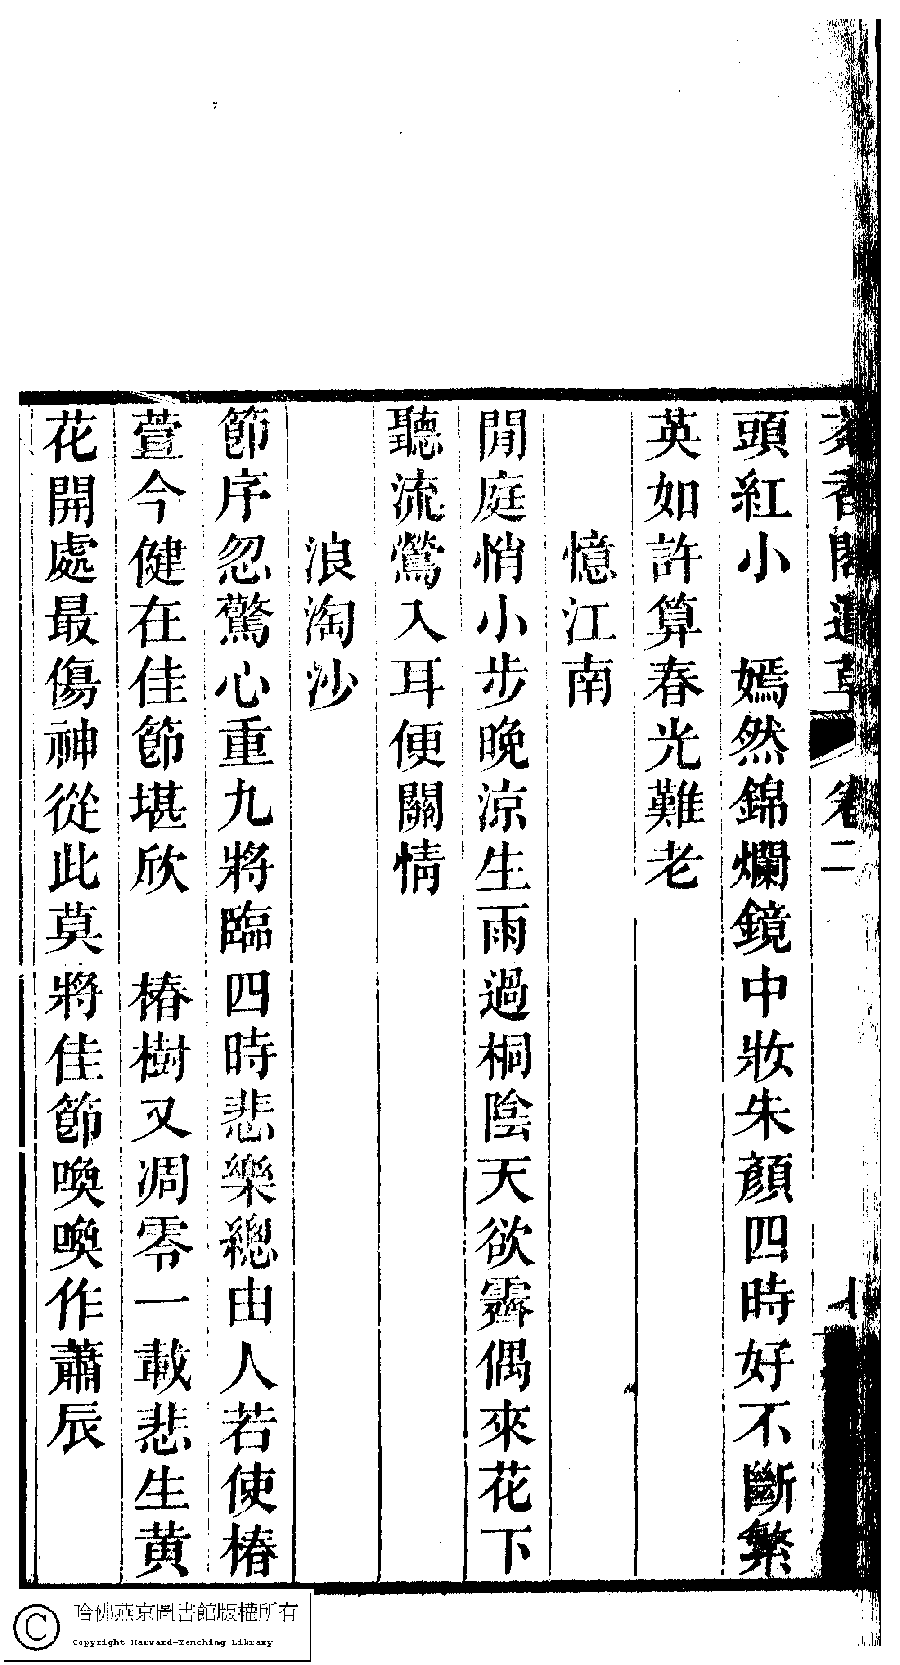 香閣遺草 卷二
頭紅小　嫣然錦爛鏡中妝朱顏四時好不斷繁
英如許算春光難老
憶江南
閒庭悄小步晚涼生雨過桐陰天欲霽偶來花下
聽流鶯入耳便關情
浪淘沙
節序忽驚心重九將臨四時悲樂總由人若使椿
萱今健在佳節堪欣　椿樹又凋零一載悲生黄
花開處最傷神從此莫將佳節喚喚作蕭辰
哈佛燕京圖書館版權所有
Copyright Harvard-Yenching Library